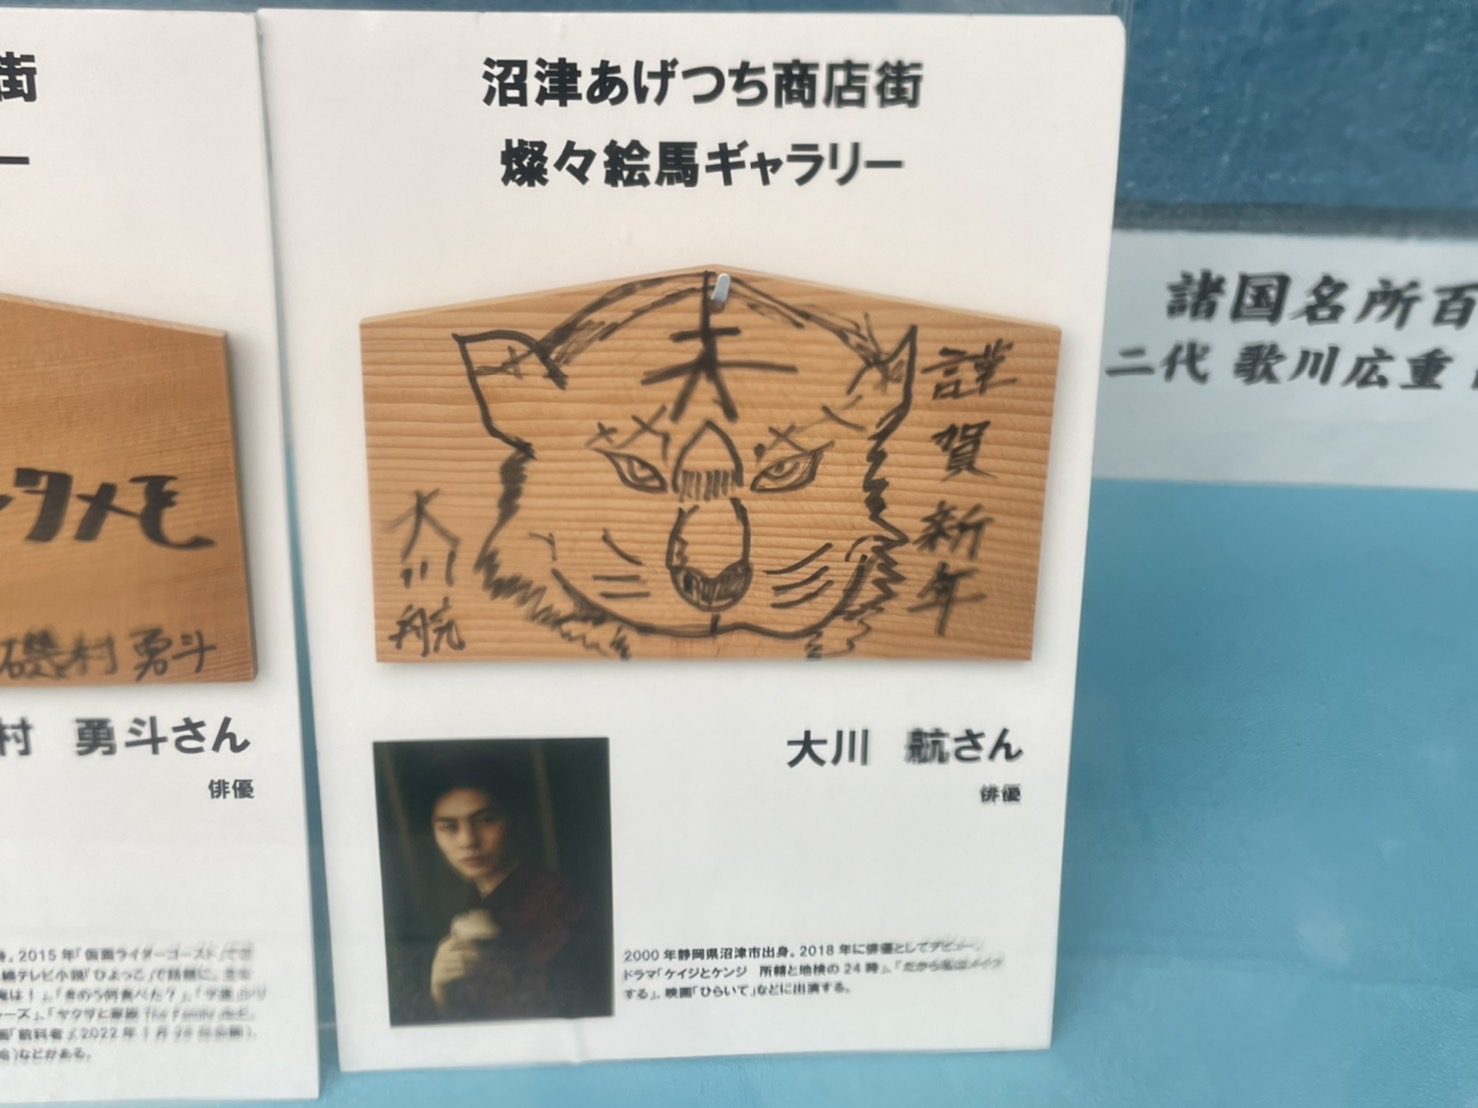 街
ー
タメモ
磯村 勇斗
村 勇斗さん
俳優
2015年「仮面ライダーゴースト」で
テレビ小説「ひよっこ」で話題に。
「きのう何食べた？」、
ーズ」、「ヤクザと家族 The Family」など。
「前科者」(2022年1月
)などがある。
沼津あげつち商店街
燦々絵馬ギャラリー
大
謹賀新年
大川航
大川 航さん
俳優
2000年静岡県沼津市出身。2018年に俳優としてデビュー。
ドラマ「ケイジとケンジ 所轄と地検の24時」、「だから私はメイク
する」、映画「ひらいて」などに出演する。
諸国名所百
二代 歌川広重